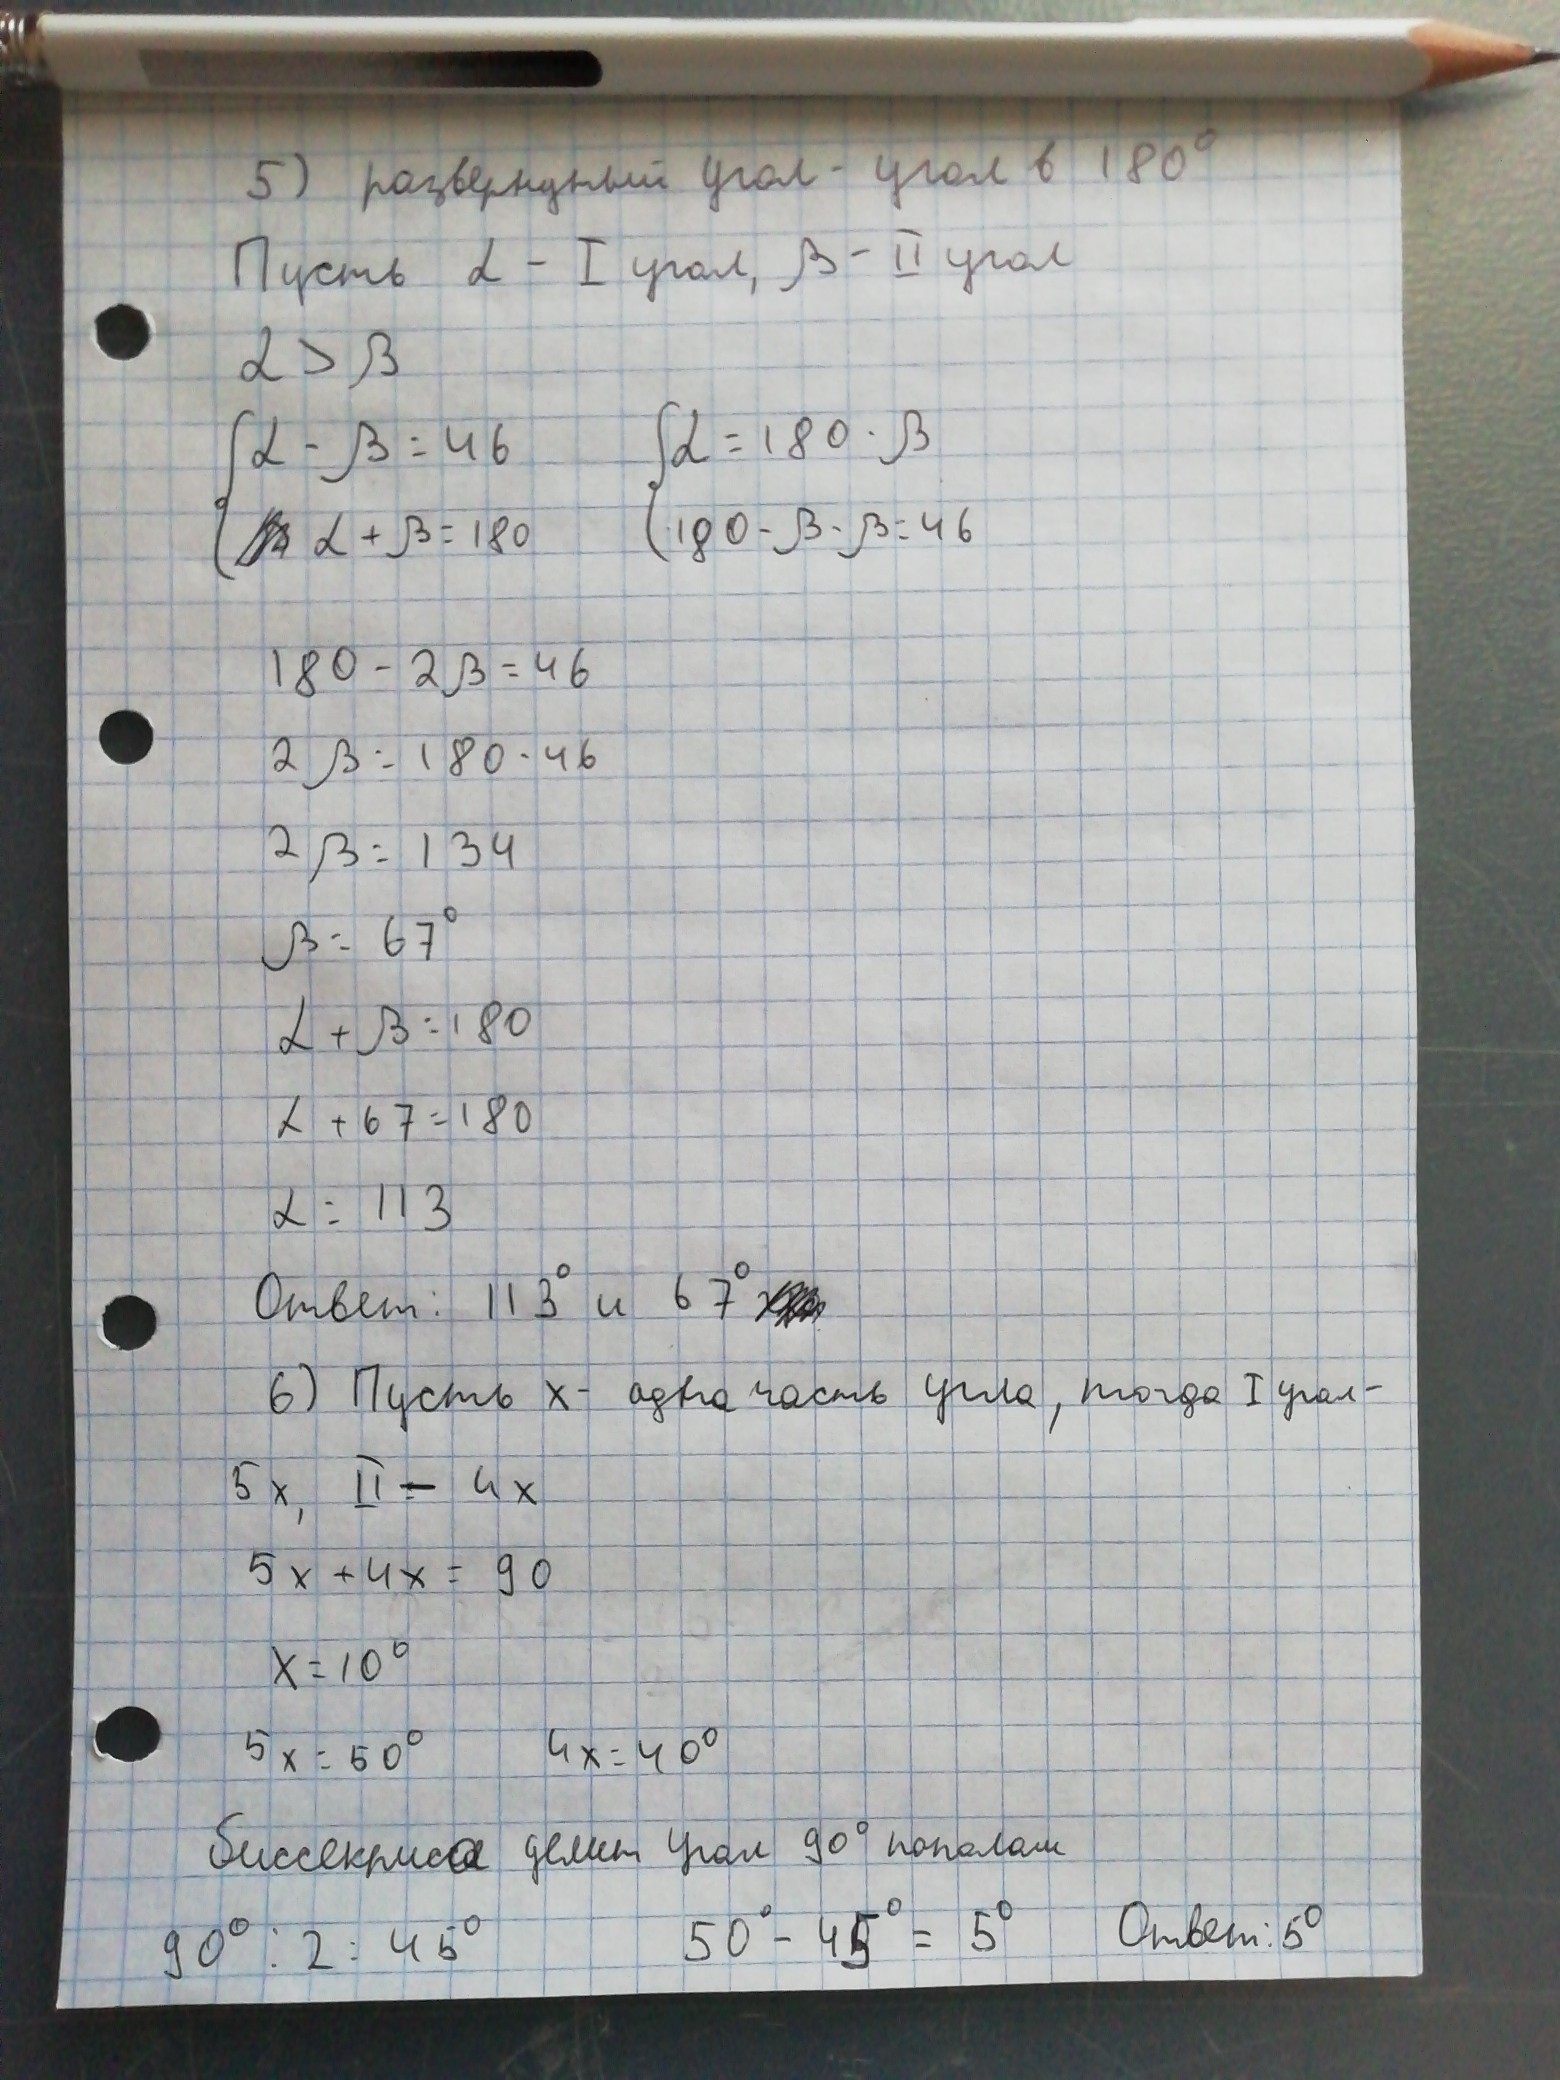 5) развернутый угол - угол в 180°
Пусть α - I угол, β - II угол
α > β
{ α - β = 46 { α = 180 - β
α + β = 180 180 - β - β = 46
180 - 2β = 46
2β = 180 - 46
2β = 134
β = 67°
α + β = 180
α + 67 = 180
α = 113
Ответ: 113° и 67°
6) Пусть x - одна часть угла, тогда I угол -
5x, II - 4x
5x + 4x = 90
x = 10°
5x = 50° 4x = 40°
биссекриса делит угол 90° пополам
90° : 2 = 45° 50° - 45° = 5° Ответ: 5°